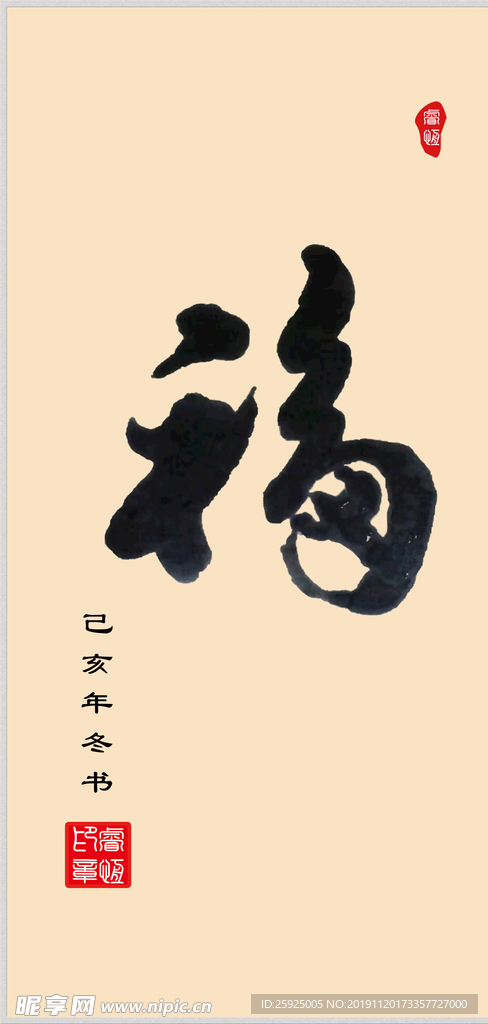 睿恆
福
己亥年冬书
睿恆印章
昵享网 www.nipic.cn
ID:25925005 NO:20191120173357727000